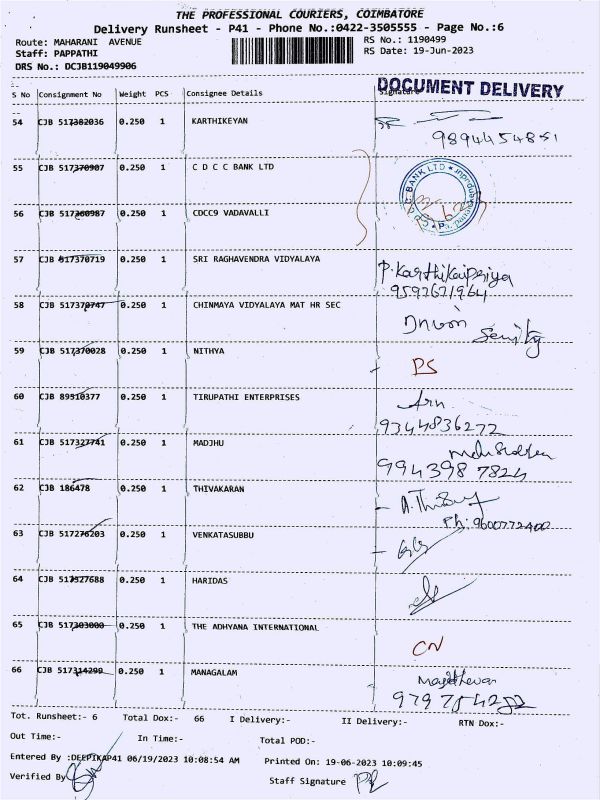 THE PROFESSIONAL COURIERS, COIMBATORE
Delivery Runsheet - P41 - Phone No.:0422-3505555 - Page No.:6
Route: MAHARANI AVENUE
RS No.: 1190499
Staff: PAPPATHI
RS Date: 19-Jun-2023
DRS No.: DCJB119049906
DOCUMENT DELIVERY
S No Consignment No Weight PCS Consignee Details Signature
54 CJB 517382036 0.250 1 KARTHIKEYAN
9894454851
55 CJB 517370907 0.250 1 C D C C BANK LTD
BANK LTD
56 CJB 517360987 0.250 1 CDCC9 VADAVALLI
57 CJB 517370719 0.250 1 SRI RAGHAVENDRA VIDYALAYA
P. Karthikaipriya
9597671964
58 CJB 517370747 0.250 1 CHINMAYA VIDYALAYA MAT HR SEC
59 CJB 517370028 0.250 1 NITHYA
PS
60 CJB 89510377 0.250 1 TIRUPATHI ENTERPRISES
9344836272
61 CJB 517327741 0.250 1 MADJHU
9943987824
62 CJB 186478 0.250 1 THIVAKARAN
Ph: 9600772400
63 CJB 517276203 0.250 1 VENKATASUBBU
64 CJB 517527688 0.250 1 HARIDAS
65 CJB 517303000 0.250 1 THE ADHYANA INTERNATIONAL
CN
66 CJB 517314299 0.250 1 MANAGALAM
Tot. Runsheet:- 6 Total Dox:- 66 I Delivery:- II Delivery:- RTN Dox:-
Out Time:- In Time:- Total POD:-
Entered By :DEEPIKAP41 06/19/2023 10:08:54 AM Printed On: 19-06-2023 10:09:45
Verified By Staff Signature